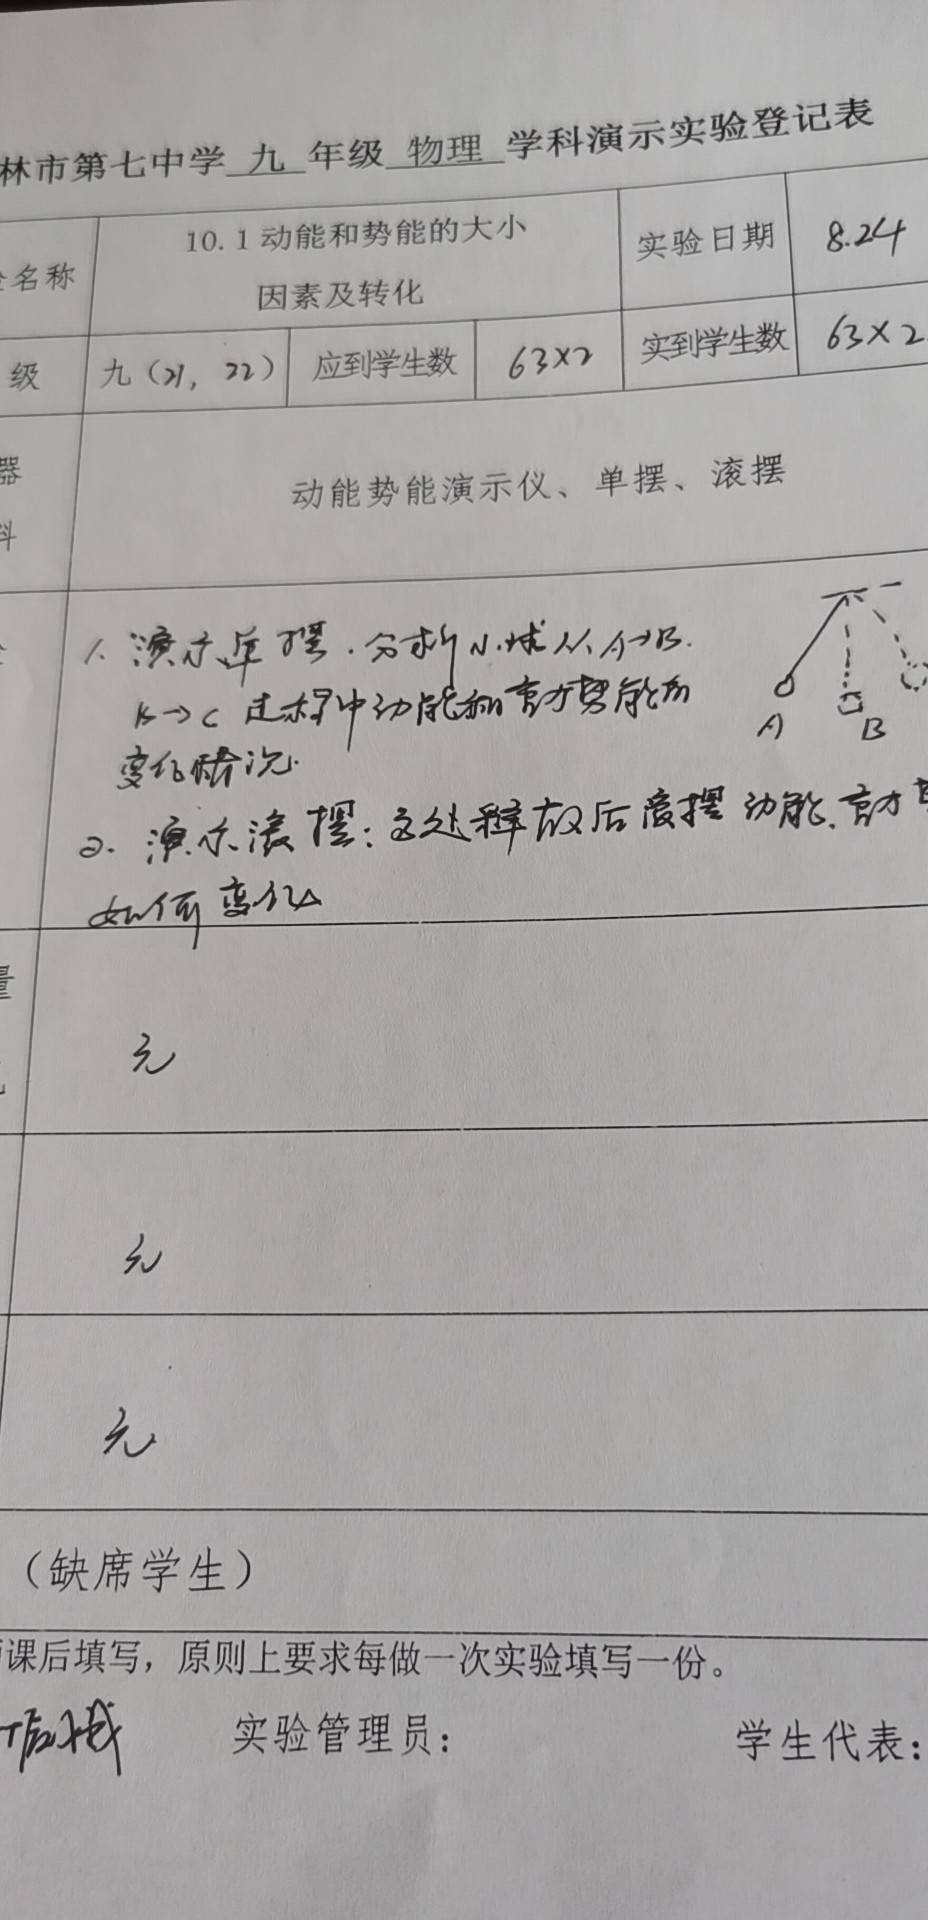 林市第七中学 九 年级 物理 学科演示实验登记表
名称
10.1动能和势能的大小
因素及转化
实验日期
8.24
级
九（21，22）
应到学生数
63×2
实到学生数
63×2
器
料
动能势能演示仪、单摆、滚摆
1. 演示单摆.分析小球从A→B.
B→C 过程中动能和重力势能的
变化情况.
A
B
2. 演示滚摆:高处释放后滚摆动能.重力
如何变化
量
无
无
无
（缺席学生）
课后填写，原则上要求每做一次实验填写一份。
实验管理员：
学生代表：